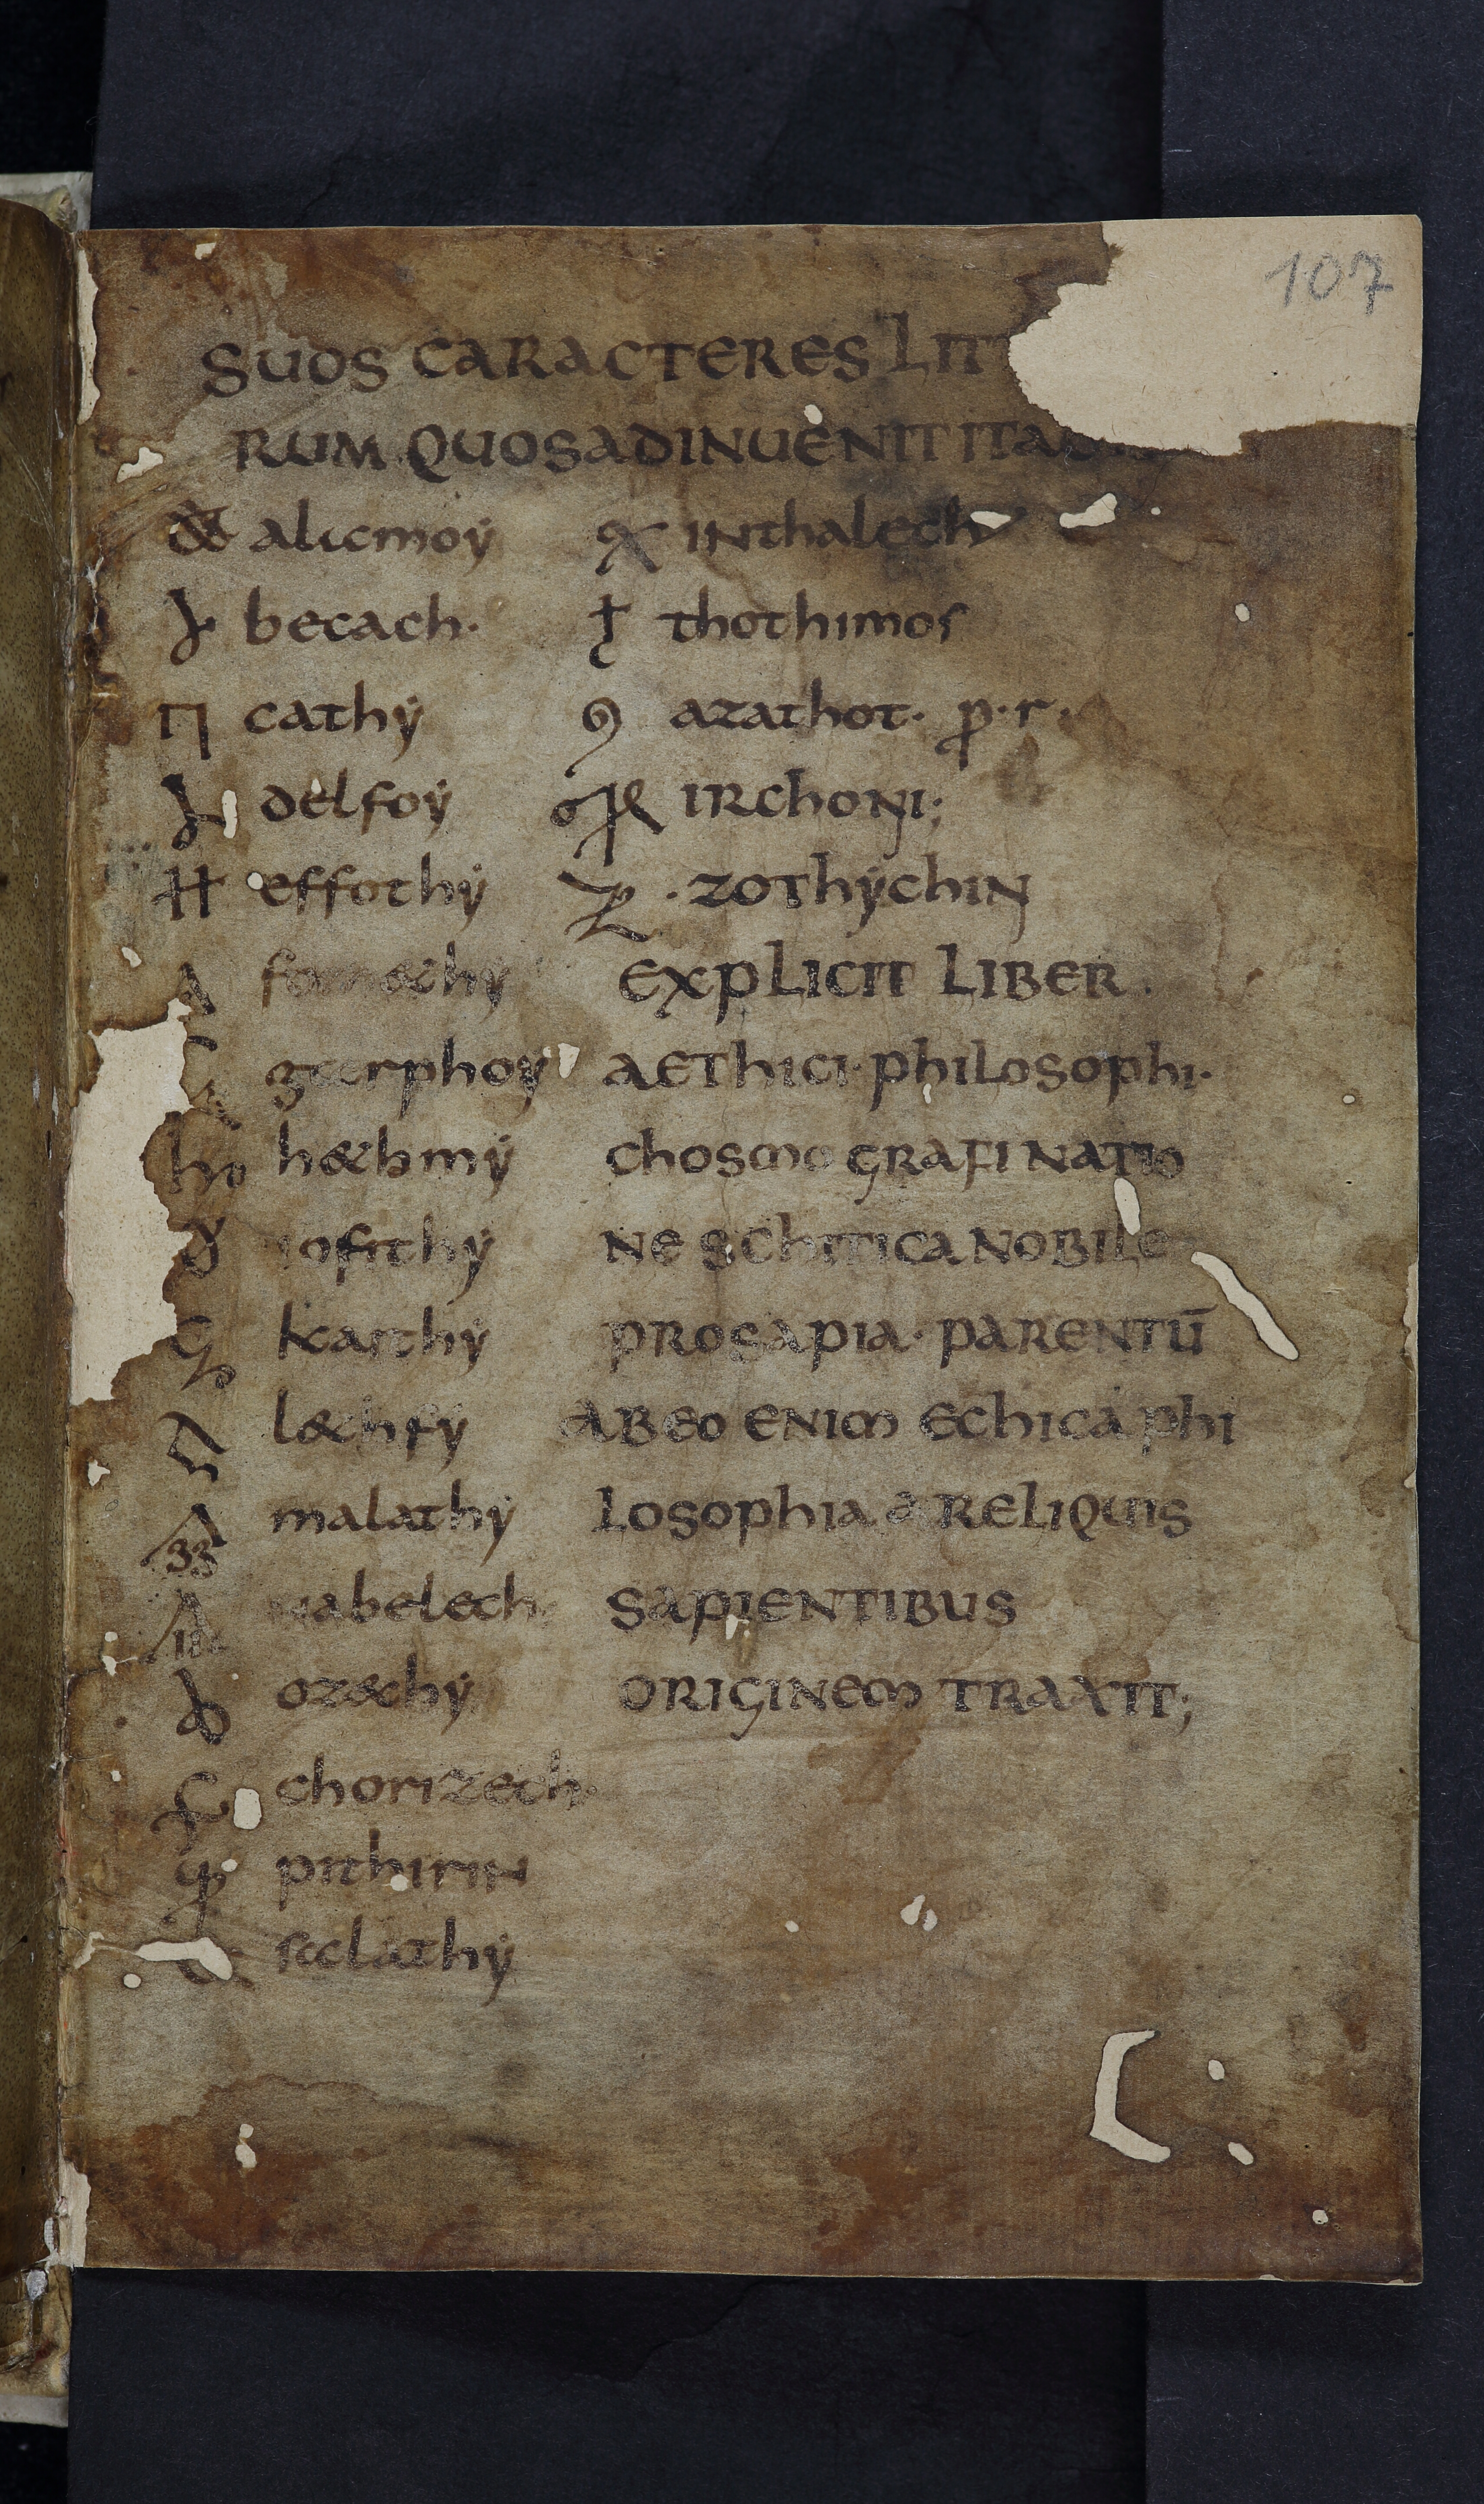 107
SUOS CARACTERES LITT
RUM QUOS ADINUENIT ITA
alicmoẏ
becach.
cathẏ
delfoẏ
effothẏ
fomethẏ
garphoẏ
hethmẏ
iofithẏ
kaithẏ
lethfẏ
malathẏ
nabeleth
ozechẏ
chorizech.
pithirin
salathẏ
INthalech
thothimos
azathot. p. r.
IRchoNI;
. zothẏchIN
EXPLICIT LIBER.
AEThICI philosophi.
chosmo GRAFI NATIO
NE SChITICA NOBILE
PROSAPIA. PARENTŪ
AB EO ENIM EChICA phi
losophia a RELIQUIS
SAPIENTIBUS
ORIGINEM TRAXIT;